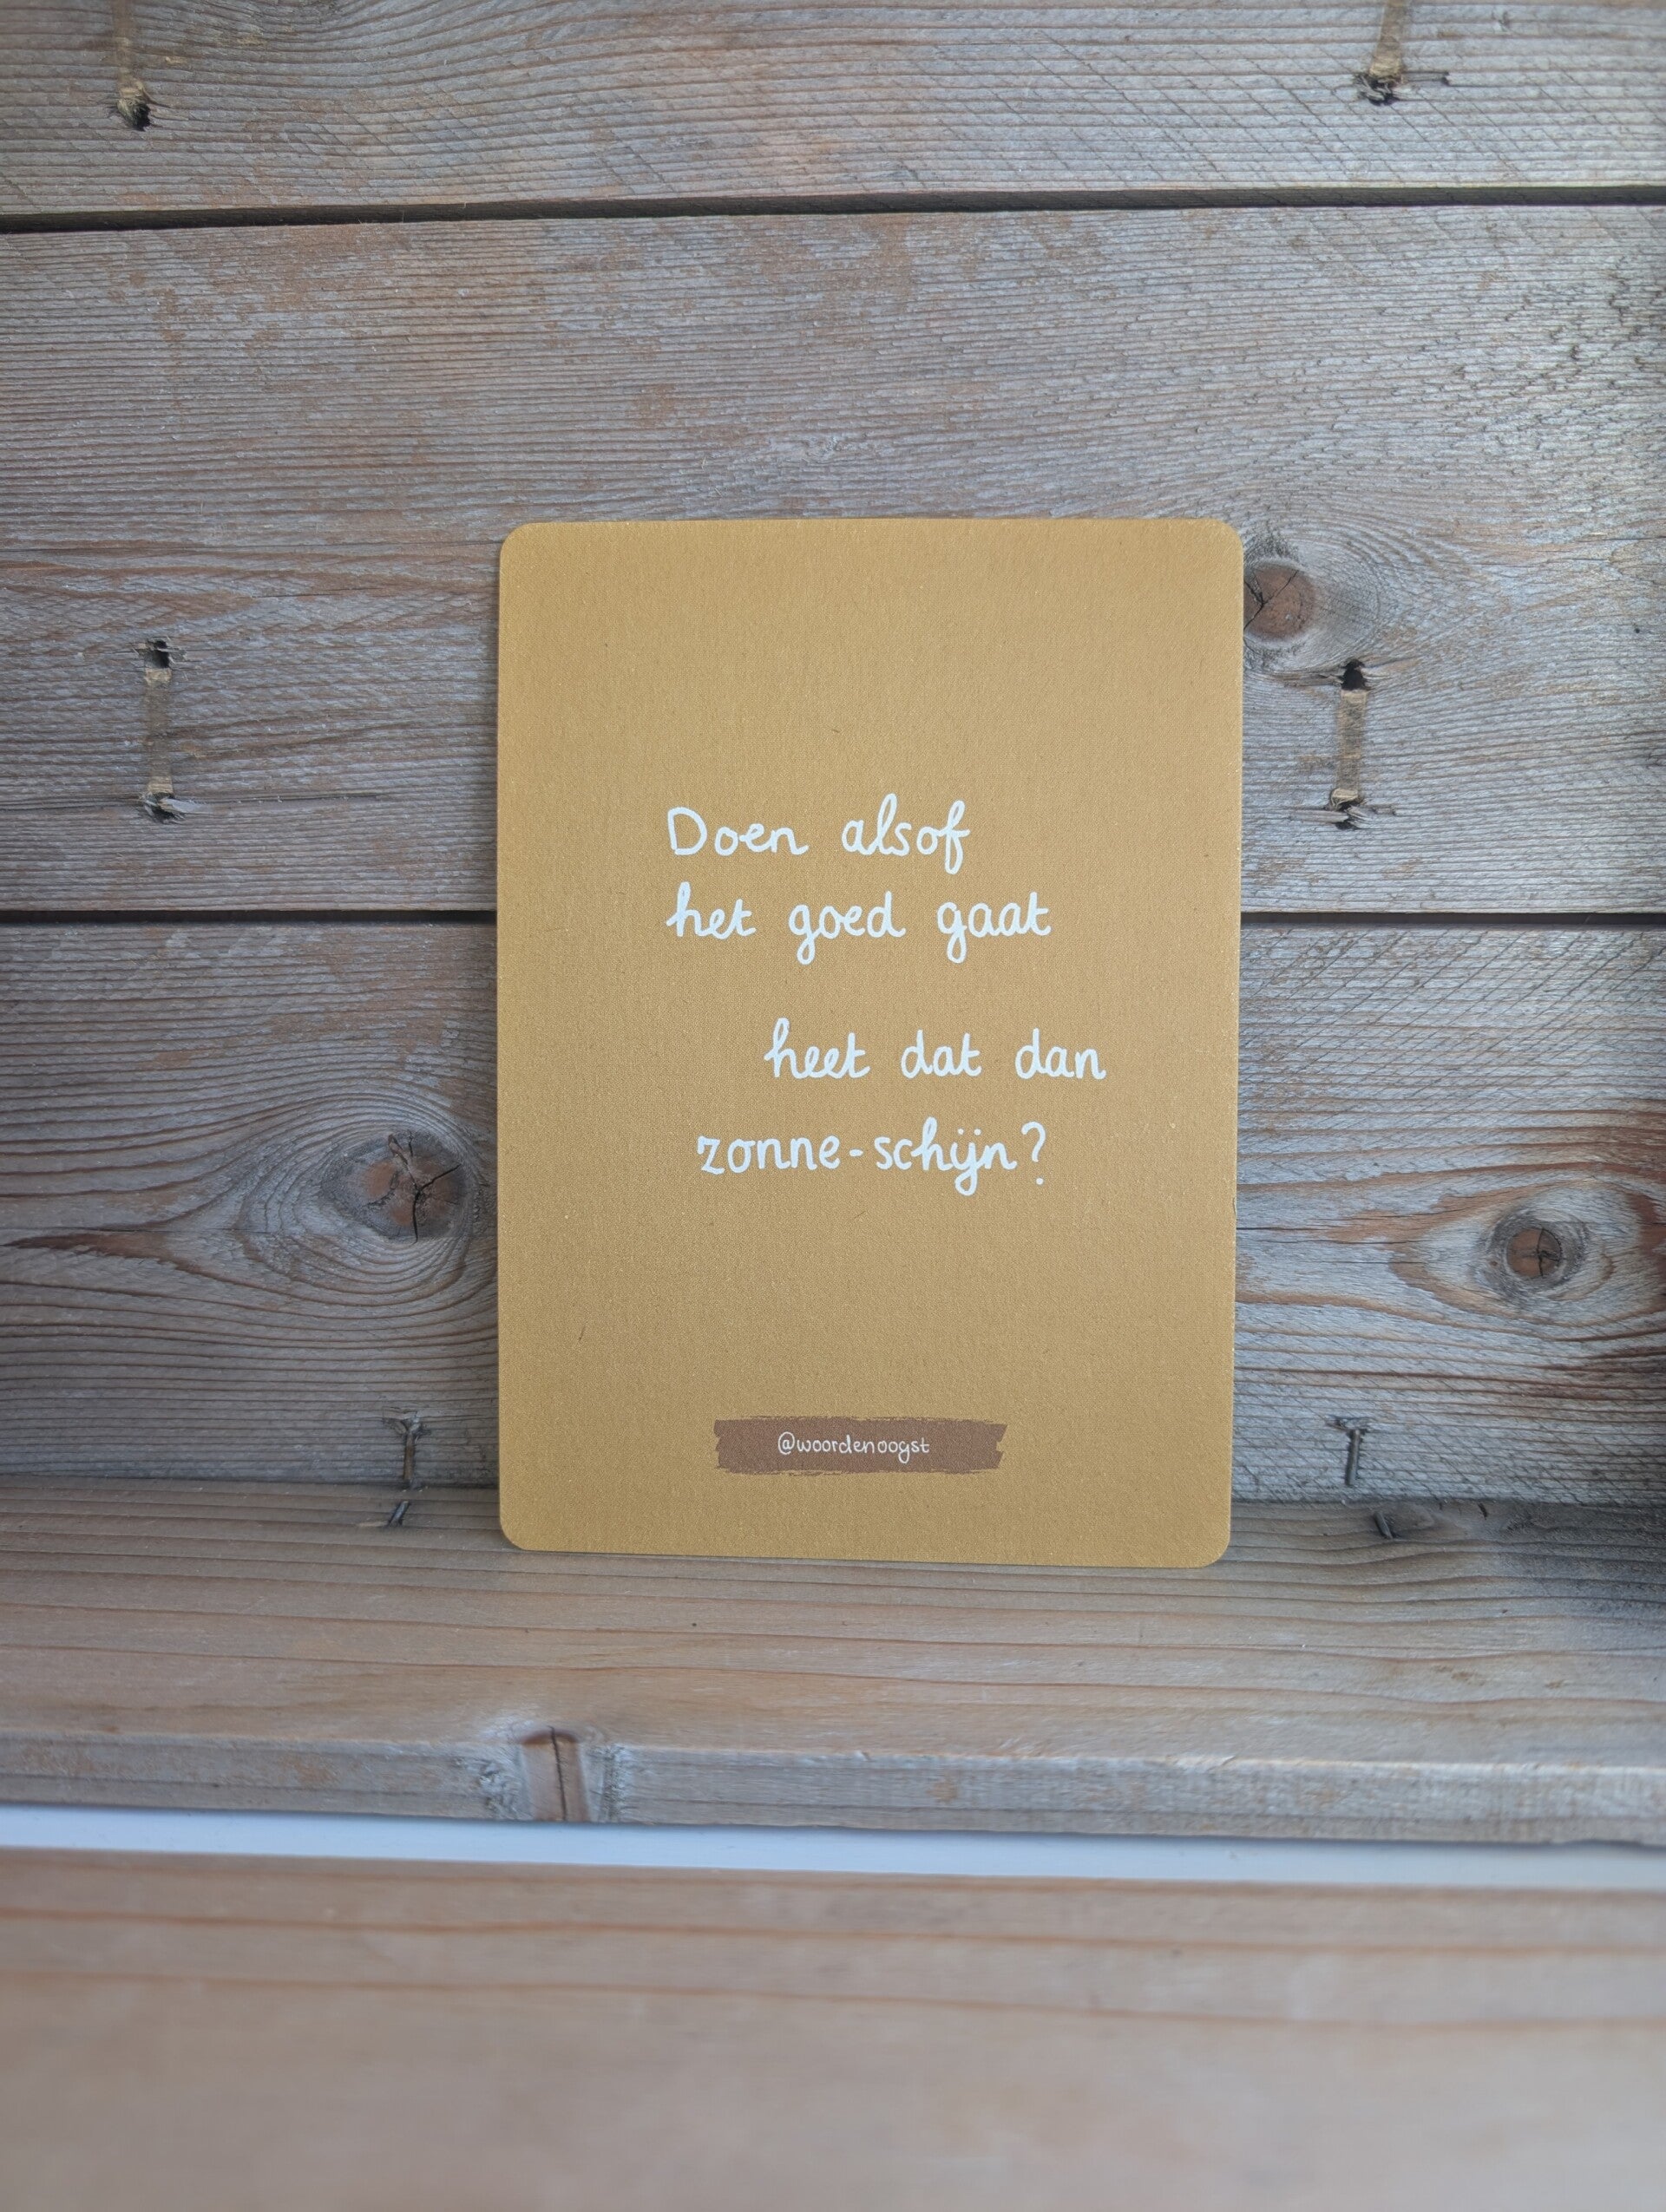 Doen alsof
het goed gaat
heet dat dan
zonne-schijn?
@woordenoogst